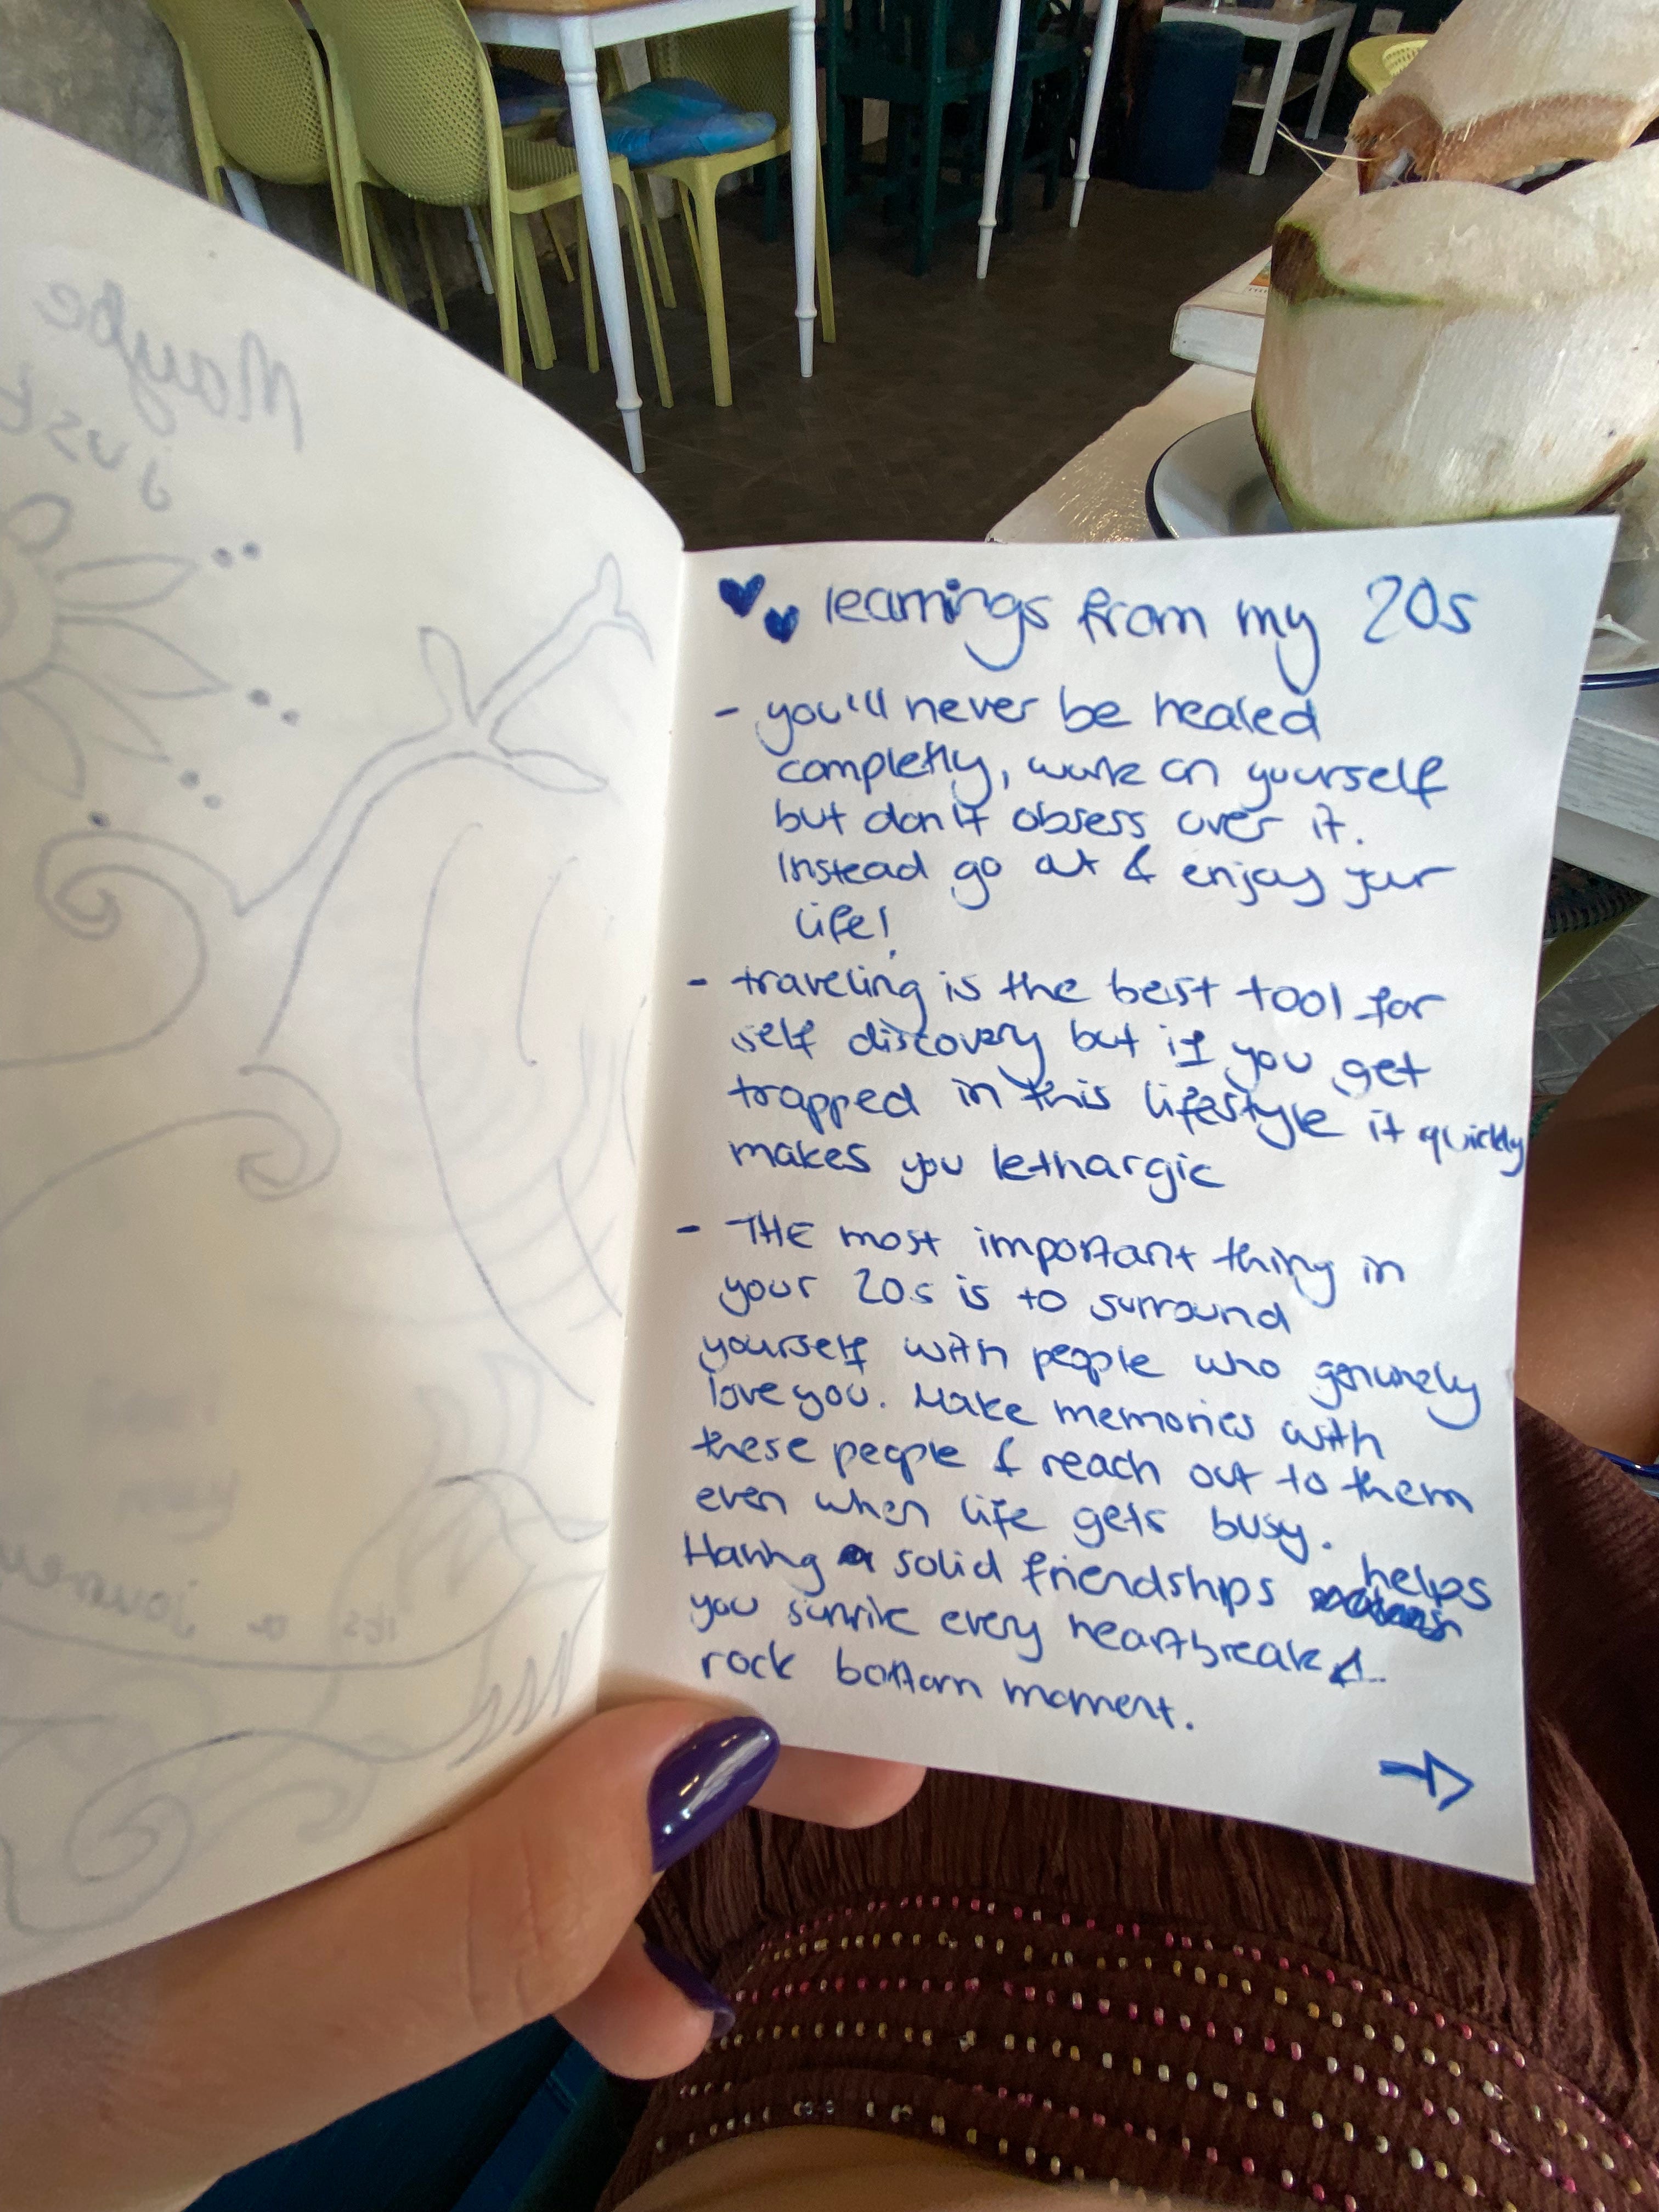 Maybe
just
its a journey
learnings from my 20s
- you'll never be healed
completly, work on yourself
but don't obsess over it.
Instead go out & enjoy your
life!
- traveling is the best tool for
self discovery but if you get
trapped in this lifestyle it quickly
makes you lethargic
- THE most important thing in
your 20s is to surround
yourself with people who genuinely
love you. Make memories with
these people & reach out to them
even when life gets busy.
Having solid friendships helps
you survive every heartbreak &
rock bottom moment.